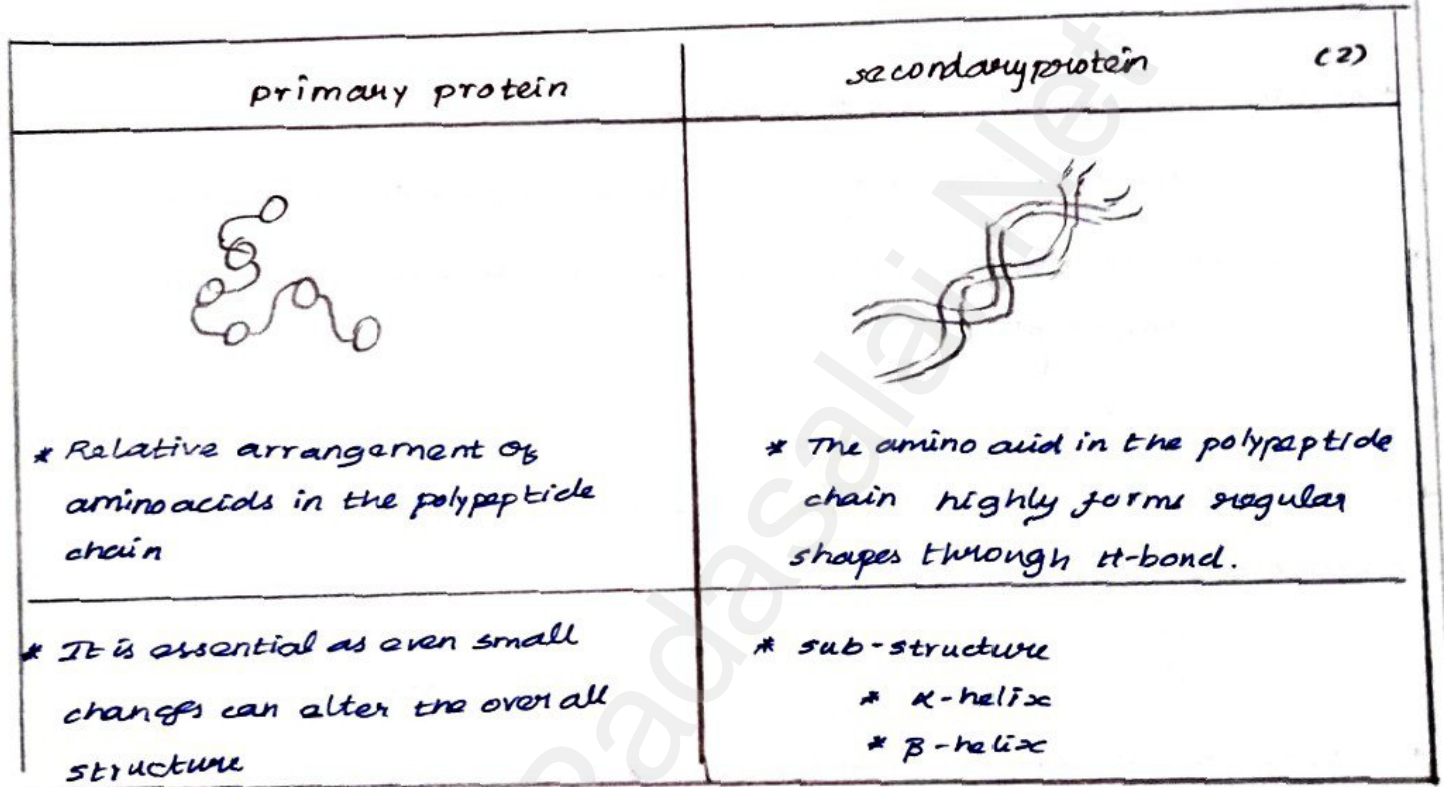 primary protein
secondary protein (2)
* Relative arrangement of
aminoacids in the polypeptide
chain
* The amino acid in the polypeptide
chain highly forms regular
shapes through H-bond.
* It is essential as even small
changes can alter the over all
structure
* sub-structure
* α-helix
* β-helix
Padasalai.Net